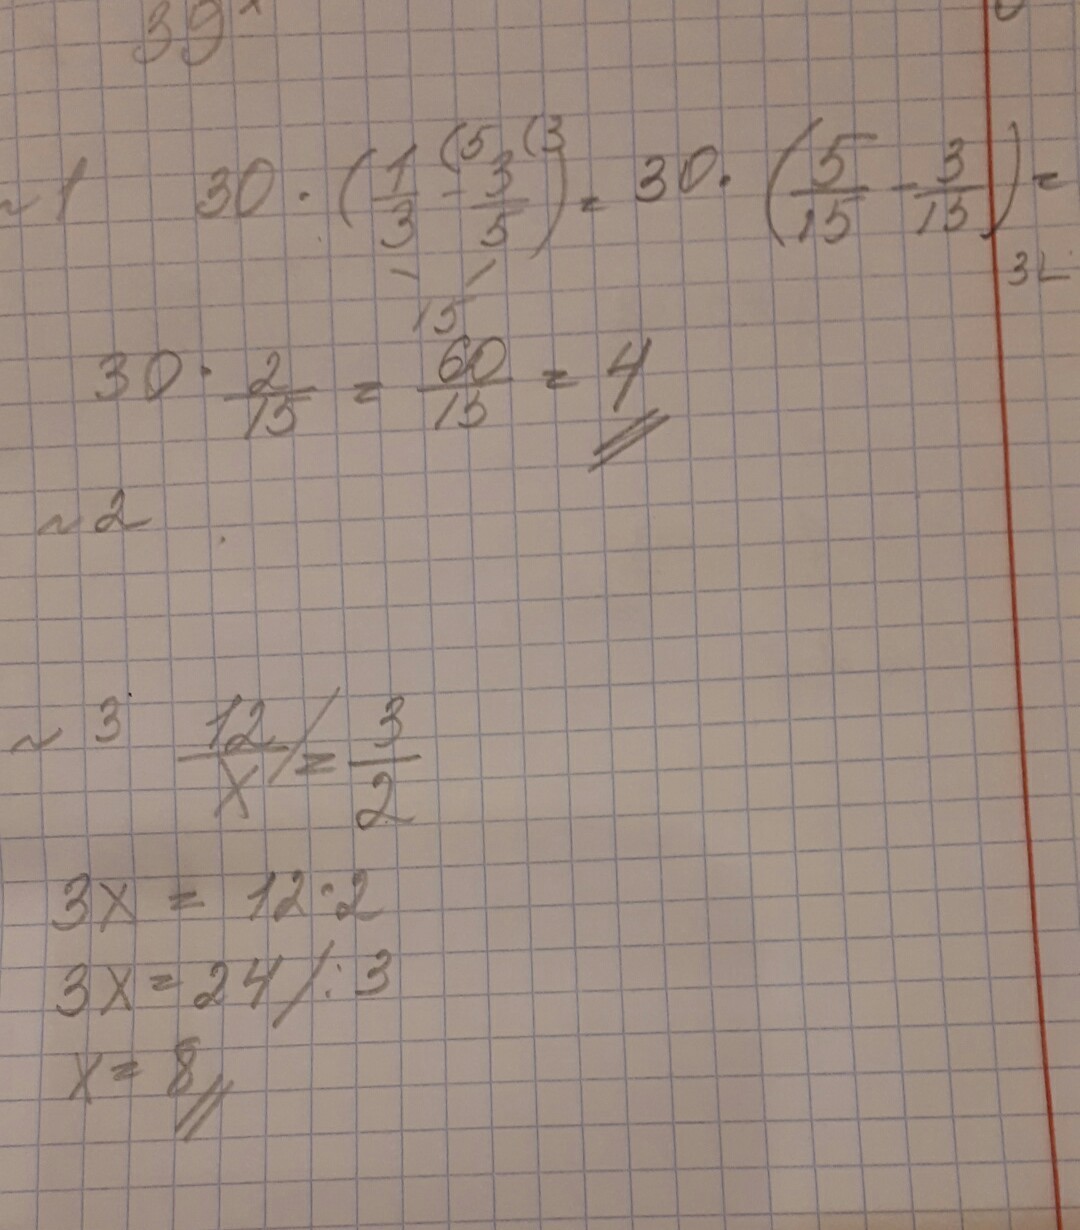 39
~1 30 · (1/3 - 3/5) = 30 · (5/15 - 3/15) =
(5 (3
15
30 · 2/15 = 60/15 = 4
~2
~3 12/x / = 3/2
3x = 12·2
3x = 24 /:3
x = 8